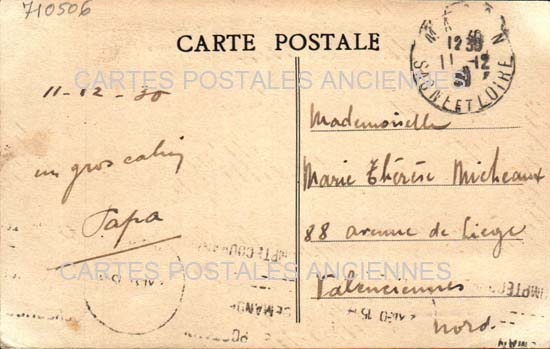 710506
CARTE POSTALE
12 30
11 - 12
SAONE ET LOIRE
CARTES POSTALES ANCIENNES
11-12-30
un gros calin
Papa
Mademoiselle
Marie Thérèse Micheaux
88 avenue de Liège
Valenciennes
Nord.
CARTES POSTALES ANCIENNES